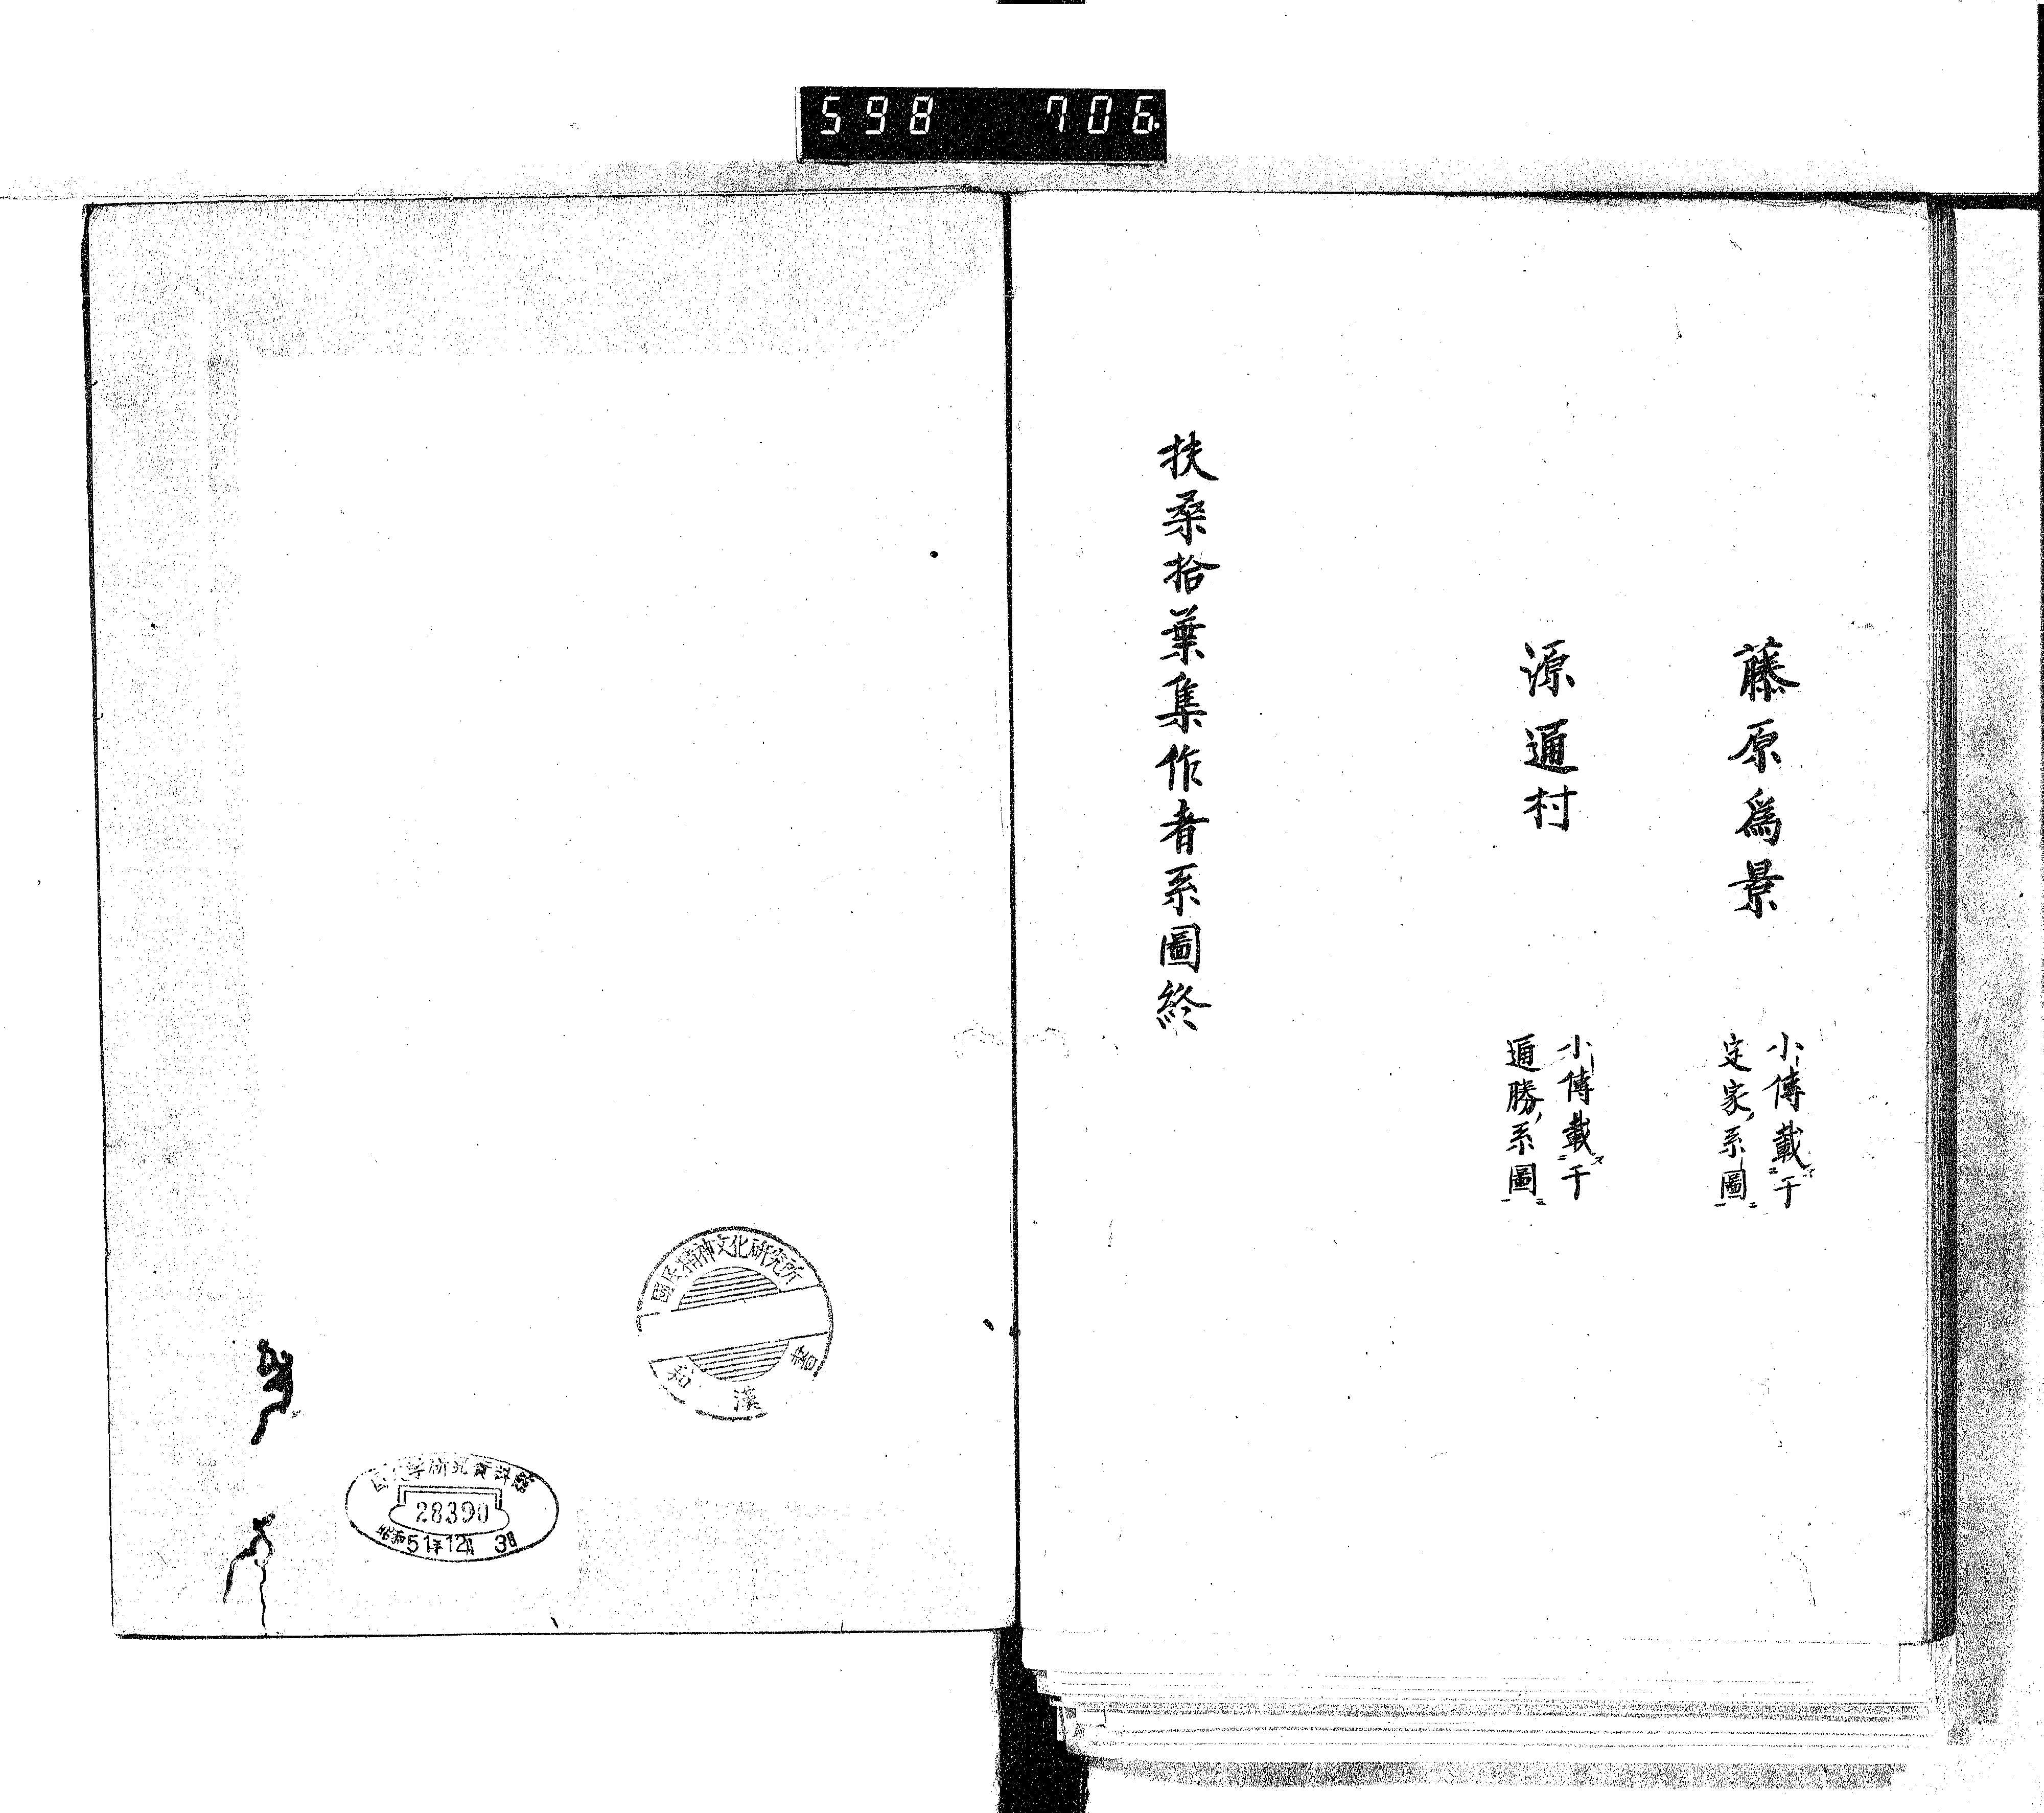 598 706
藤原爲景
小傳載于
定家系圖
源通村
小傳載于
通勝系圖
扶桑拾葉集作者系圖終
國民精神文化研究所
和漢書
学研究資料館
28390
昭和51年12月3日